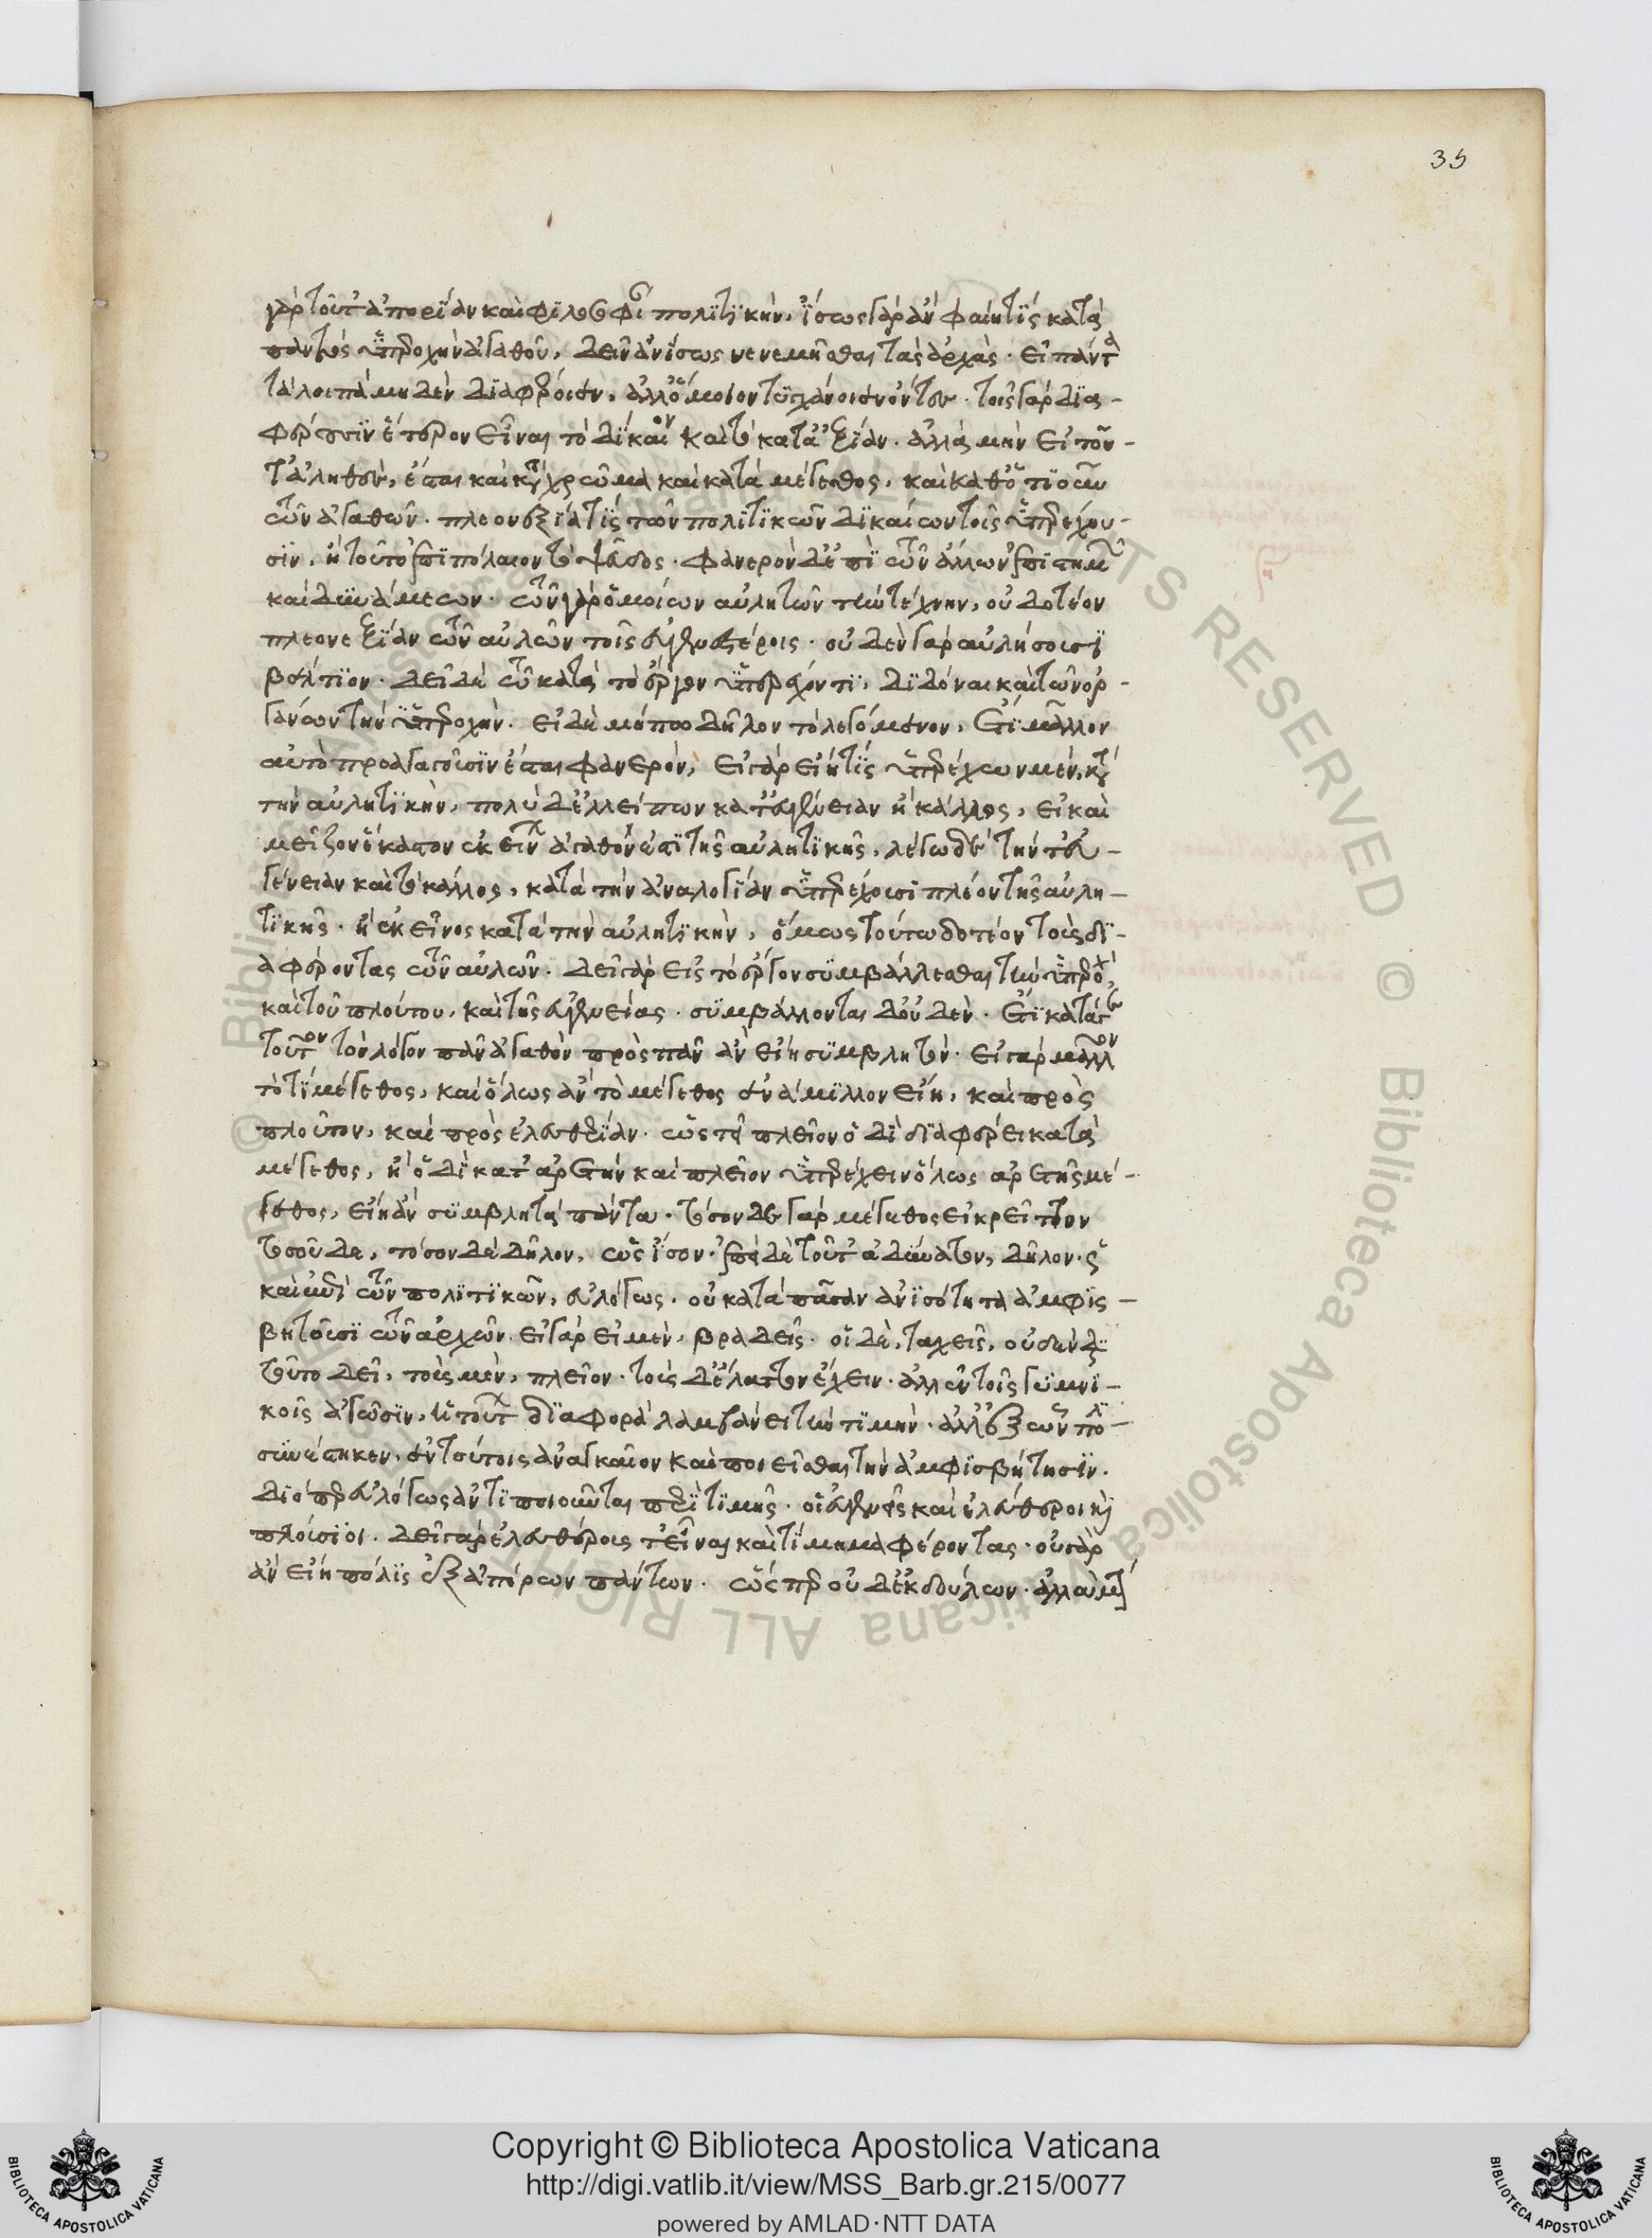 35
γὰρ τοῦτ' ἀπορίαν καὶ φιλοσοφί πολιτικήν, ἴσως γὰρ ἂν φαίη τὶς κατὰ
παντὸς ὑπεροχὴν ἀγαθοῦ, δεῖν ἀνίσως νενεμῆσθαι τὰς ἀρχὰς. εἰ πάντα
τὰ λοιπὰ μηδὲν διαφέροιεν, ἀλλ' ὅμοιοι τυγχάνοιεν ὄντες. τοῖς γὰρ δια-
φέρουσιν ἕτερον εἶναι τὸ δίκαιον καὶ τὸ κατ' ἀξίαν. ἀλλὰ μὴν εἰ τοῦ-
τ' ἀληθὲς, ἔσται καὶ κατὰ χρῶμα καὶ κατὰ μέγεθος, καὶ καθ' ὁτιοῦν
τῶν ἀγαθῶν. πλεονεξία τὶς τῶν πολιτικῶν δικαίων τοῖς ὑπερέχου-
σιν, ἢ τοῦτο ἐπιπόλαιον τὸ ψεῦδος. φανερὸν δ' ἐπὶ τῶν ἄλλων ἐπιστημῶ
καὶ δυνάμεων. τῶν γὰρ ὁμοίων αὐλητῶν τὴν τέχνην, οὐ δοτέον
πλεονεξίαν τῶν αὐλῶν τοῖς εὐγενεστέροις. οὐδὲν γὰρ αὐλήσουσι
βέλτιον. δεῖ δὲ τῷ κατὰ τὸ ἔργον ὑπερέχοντι, διδόναι καὶ τῶν ὀρ-
γάνων τὴν ὑπεροχὴν. εἰ δὲ μήπω δῆλον τὸ λεγόμενον, ἔτι μᾶλλον
αὐτὸ προαγαγοῦσιν ἔσται φανερὸν, εἰ γὰρ εἴη τὶς ὑπερέχων μὲν, κατὰ
τὴν αὐλητικὴν, πολὺ δ' ἐλλείπων κατ' εὐγένειαν ἢ κάλλος, εἰ καὶ
μεῖζον ἕκαστον ἐκείνων ἀγαθόν ἐστι τῆς αὐλητικῆς, λέγω δὲ τήν τ' εὐ-
γένειαν καὶ τὸ κάλλος, κατὰ τὴν ἀναλογίαν ὑπερέχουσι πλέον τῆς αὐλη-
τικῆς. ἢ ἐκεῖνος κατὰ τὴν αὐλητικὴν, ὅμως τούτω δοτέον τοὺς δι-
αφέροντας τῶν αὐλῶν. δεῖ γὰρ εἰς τὸ ἔργον συμβάλλεσθαι τὴν ὑπερο,
καὶ τοῦ πλούτου, καὶ τῆς εὐγενείας. συμβάλλονται δ' οὐδὲν. ἔτι κατά γε
τοῦτον τὸν λόγον πᾶν ἀγαθὸν πρὸς πᾶν ἂν εἴη συμβλητὸν. εἰ γὰρ μᾶλλον
τὸ τὶ μέγεθος, καὶ ὅλως ἂν τὸ μέγεθος ἐνάμιλλον εἴη, καὶ πρὸς
πλοῦτον, καὶ πρὸς ἐλευθερίαν. ὥστ' εἰ πλεῖον ὁδὶ διαφέρει κατὰ
μέγεθος, ἢ ὁδὶ κατ' ἀρετὴν καὶ πλεῖον ὑπερέχειν ὅλως ἀρετῆς μέ-
γεθος, εἴη ἂν συμβλητὰ πάντα. τοσόνδε γὰρ μέγεθος εἰ κρεῖττον
τοσοῦδε, τόσονδε δῆλον, ὡς ἴσον. ἐπεὶ δὲ τοῦτ' ἀδύνατον, δῆλον. ὡς
καὶ ἐπὶ τῶν πολιτικῶν, εὐλόγως. οὐ κατὰ πᾶσαν ἀνισότητα ἀμφις-
βητοῦσι τῶν ἀρχῶν. εἰ γὰρ εἰ μὲν, βραδεῖς. οἱ δὲ, ταχεῖς, οὐδὲν διὰ
τοῦτο δεῖ, τοὺς μὲν, πλεῖον. τοὺς δ' ἔλαττον ἔχειν. ἀλλ' ἐν τοῖς γυμνι-
κοῖς ἀγῶσιν, ἡ τούτων διαφορὰ λαμβάνει τὴν τιμήν. ἀλλ' ἐξ ὧν πόλι-
συνέστηκεν. ἐν τούτοις ἀναγκαῖον καὶ ποιεῖσθαι τὴν ἀμφισβήτησιν.
διόπερ εὐλόγως ἀντιποιοῦνται περὶ τιμῆς. οἱ εὐγενεῖς καὶ ἐλεύθεροι καὶ
πλούσιοι. δεῖ γὰρ ἐλευθέρους τ' εἶναι καὶ τίμημα φέροντας. οὐ γὰρ
ἂν εἴη πόλις ἐξ ἀπόρων πάντων. ὥσπερ οὐδ' ἐκ δούλων. ἀλλὰ μὴν
Copyright © Biblioteca Apostolica Vaticana
http://digi.vatlib.it/view/MSS_Barb.gr.215/0077
powered by AMLAD·NTT DATA